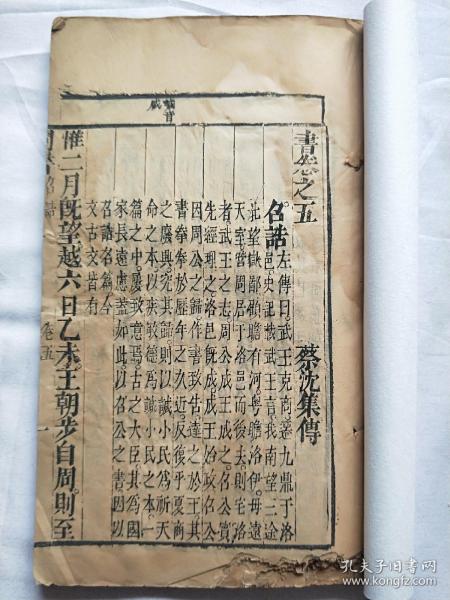 書卷之五　蔡沈集傳
召誥　左傳曰。武王克商。遷九鼎于洛
邑。史記載武王言我南望三途
北望嶽鄙顧瞻有河。粤瞻洛伊。毋遠
天室。營周居于洛邑而後去。則宅洛
者。武王之志。周公成王成之。召公實
先經理之。洛邑既成。成王始政。召公
因周公之歸。作書致告達之於王。其
書拳拳於歷年之久近。反復乎夏商
之廢興。究其歸。則以諴小民爲祈天
命之本。以疾敬德爲諴小民之本。一
篇之中。屢致意焉。古之大臣。其爲國
家長遠慮蓋如此。以召公之書。因以
召誥名篇。今
文古文皆有
惟二月既望越六日乙未。王朝步自周。則至
召誥　卷五　一
孔夫子旧书网
book.kongfz.com